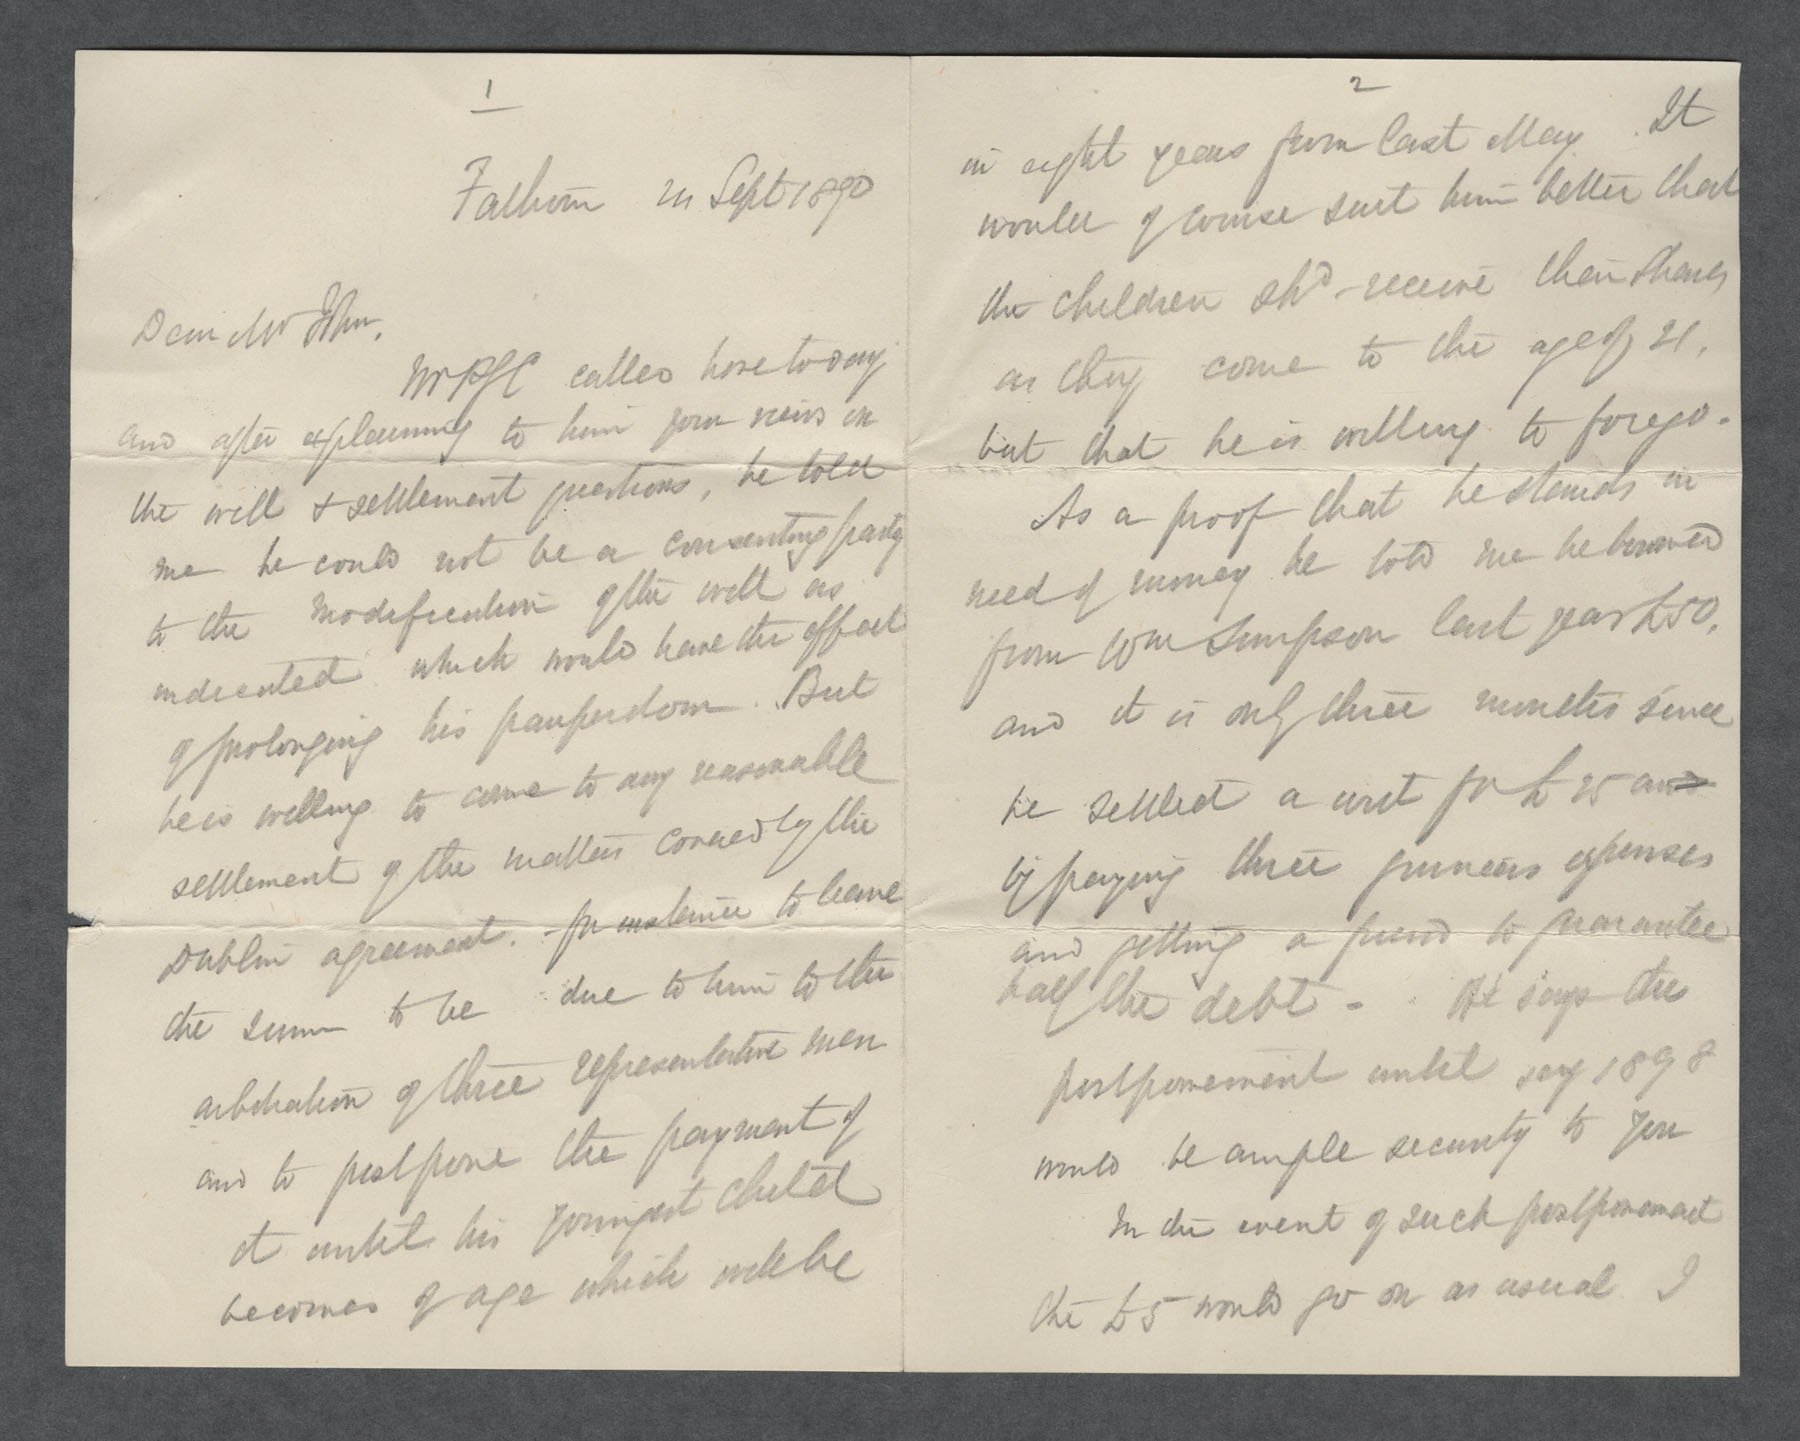 1
Fathom 21 Sept 1890
Dear Mr John,
Mr PJC called here to day
and after explaining to him your views on
the will & settlement questions, he told
me he could not be a consenting party
to the modification of the will as
indicated which would have the effect
of prolonging his pauperdom. But
he is willing to come to any reasonable
settlement of the matters covered by the
Dublin agreement. - for instance to leave
the sum to be due to him to the
arbitration of three representative men
and to postpone the payment of
it until his youngest child
becomes of age which will be
2
in eight years from last May. It
would of course suit him better that
the children shd receive their shares
as they come to the age of 21,
but that he is willing to forego.
As a proof that he stands in
need of money he told me he borrowed
from Wm Simpson last year £50,
and it is only three months since
he settled a writ for £25 and
by paying three guineas expenses
and getting a friend to guarantee
half the debt - He says the
postponement until say 1898
would be ample security to you
In the event of such postponement
the £5 would go on as usual I